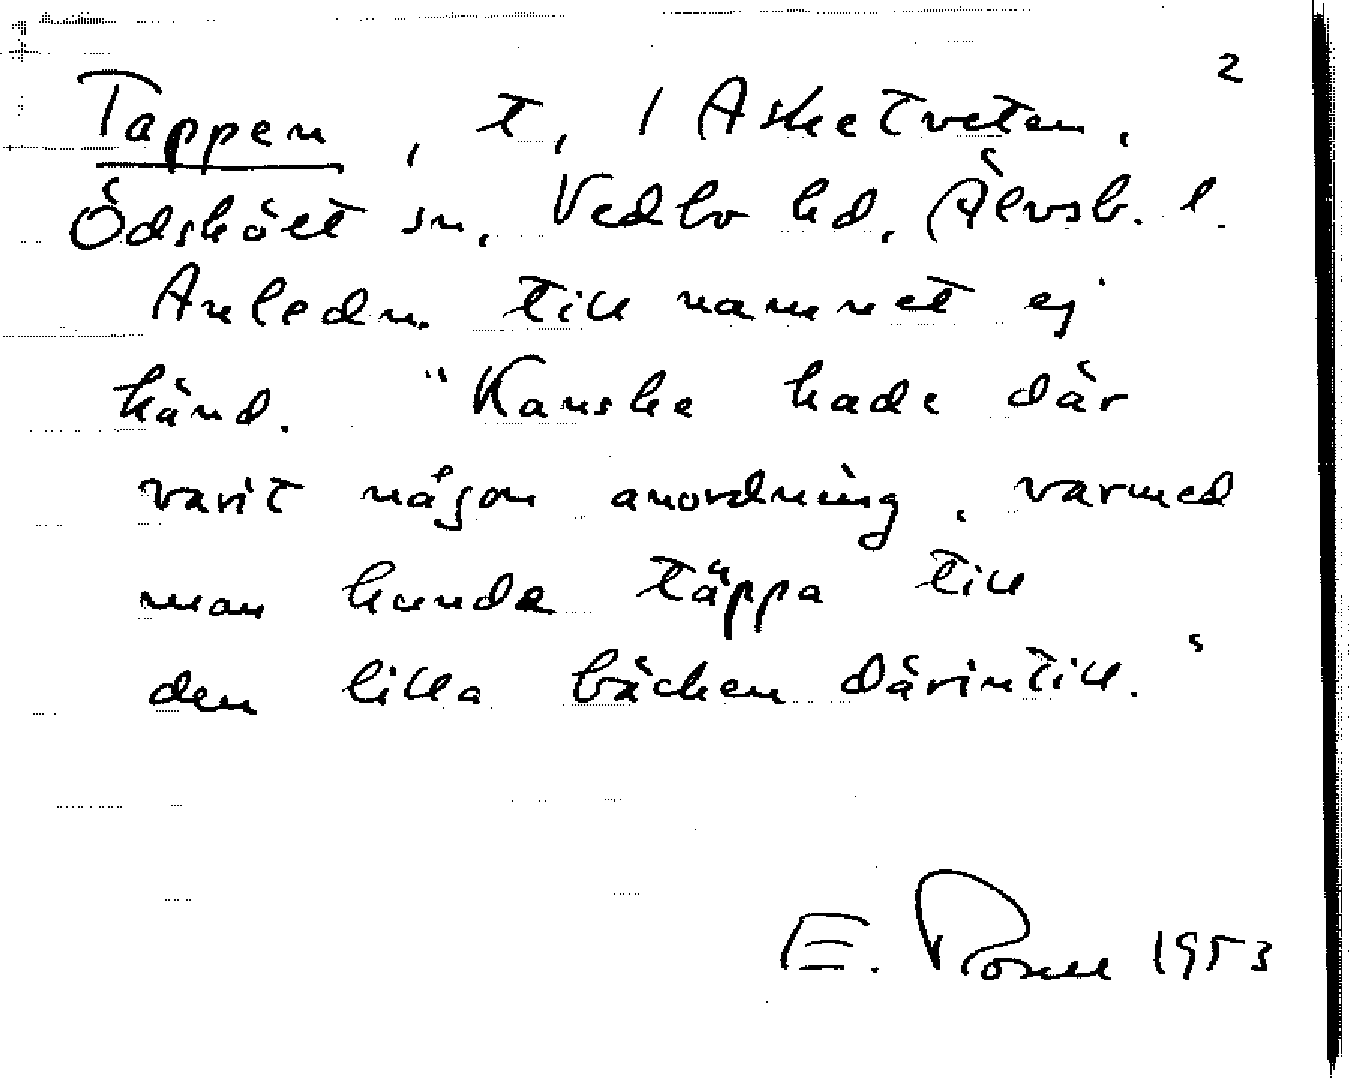 2
Tappen, t, / Asketveten,
Ödskölt sn, Vedbo hd, Älvsb. l.
Anledn. till namnet ej
känd. "Kanske hade där
varit någon anordning, varmed
man kunde täppa till
den lilla bäcken därintill."
E. 1953